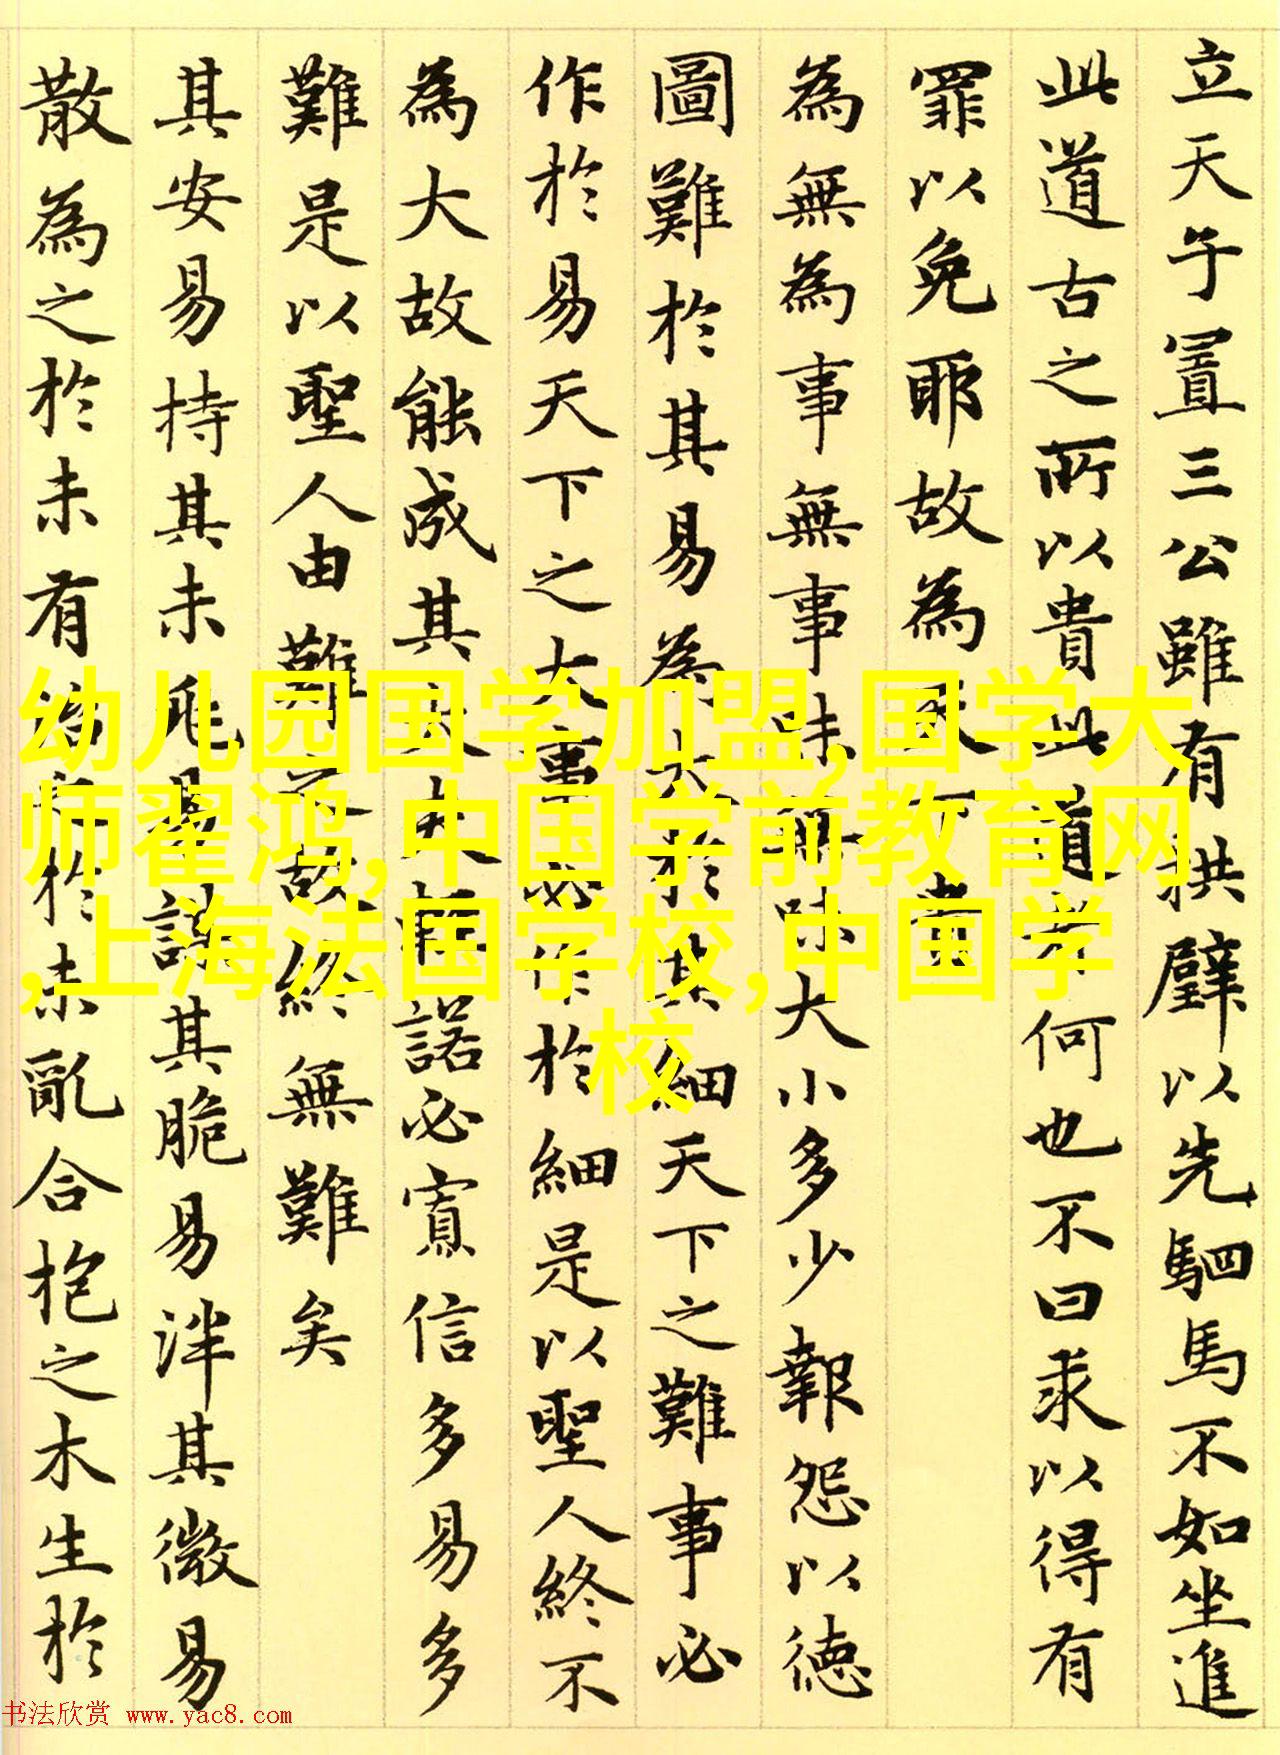 立天子置三公雖有拱璧以先駟馬不如坐進
此道古之所以貴此道者何也不曰求以得有
罪以免耶故為天下貴
為無為事無事味無味大小多少報怨以德
圖難於其易為大於其細天下之難事必
作於易天下之大事必作於細是以聖人終不
為大故能成其大夫輕諾必寡信多易多
難是以聖人由難之故終無難矣
其安易持其未兆易謀其脆易泮其微易
散為之於未有治之於未亂合抱之木生於
幼儿园国学加盟,国学大
师翟鸿,中国学前教育网
,上海法国学校,中国学
校
书法欣赏 www.yac8.com